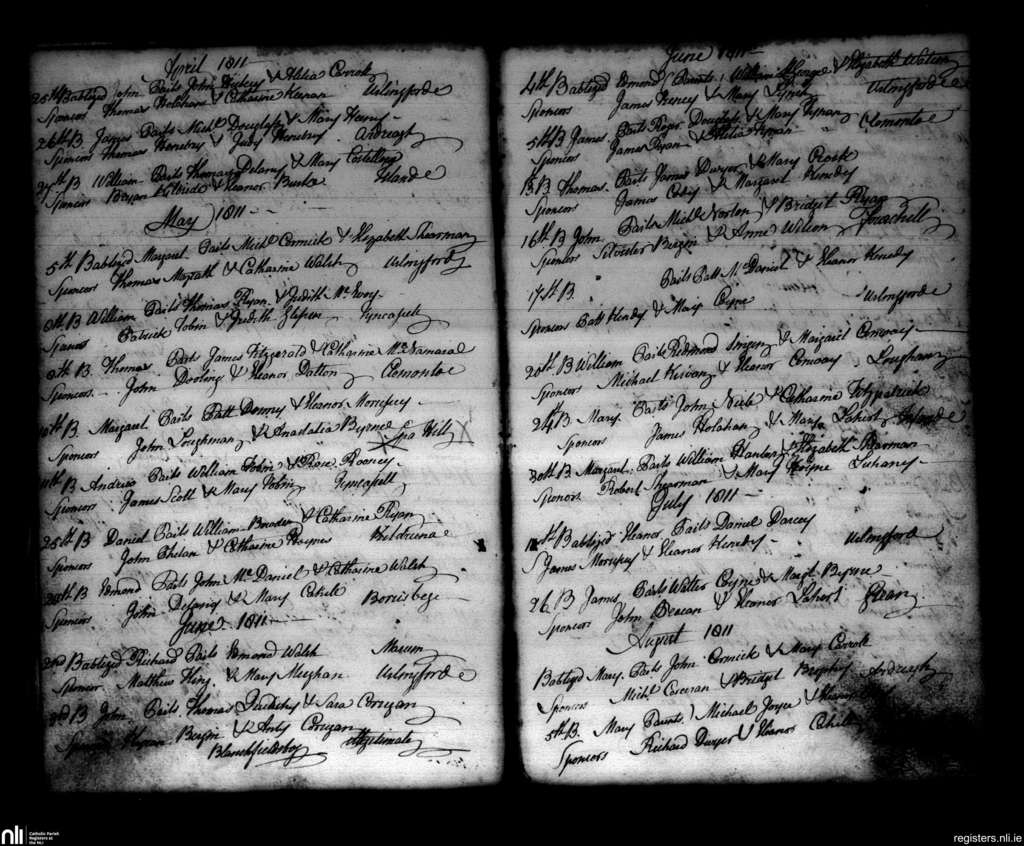 April 1811
25th Babtizd John Paits John Hickey & Alilia Carroll
Sponsors Thomas Holohan & Catharine Keenan Uslingforde
26th B. James Paits Michl Douglass & Mary Henry
Sponcers Thomas Henebry & Judy Henebry Ardreagh
27th B William Paits Thomas Delany & Mary Costelloy
Sponcers Bryan Kilbride & Eleanor Burke Islande
May 1811
5th Babtizd Margaret Paits Michl Cormick & Elizabeth Shearman
Sponcers Thomas Magrath & Catharine Walsh Uslingford
B William Paits Thomas Ryan & Judith Mc Evoy
Patrick Tobin & Judith Tyncashell
B. Thomas Paits James Fitzgerald & Catharine McNamaral
Sponcers John Dooling & Eleanor Dalton Clomontoe
10th B. Margaret Paits Patt Denny & Eleanor Morrissey
Sponsors John Loughman & Anastatia Byrne Spa Well
11th B Andrew Paits William Tobin & Rose Rooney
Sponsors James Scott & Mary Tobin Tyncashell
25th B Daniel Paits William & Catharine Ryan
Sponsors John Phelan & Catharine Haynes Kildreena
B Edmond Paits John McDaniel & Catharine Walsh
Sponcers John Delany & Mary Cahill Borrisbege
June 1811
2nd Babtizd Richard Paits Edmond Walsh
Sponcer Matthew King & Mary Meighan Uslingforde
2nd B John Paits Thomas & Sara Corrigan
Bergin & Anty Corrigan
Blanchfieldsboy Illigitimate
June 1811
4th Babtizd Edmond (Paints) William & Elizabeth Watson
Sponcers James Henry & Mary Lynch Uslingforde
5th B James Paits Roger Douglass & Mary Tynan
Sponcers James Ryan & Alilia Tynan Clomontoe
B. Thomas Paits James Dwyer & Mary Roark
Sponcers James Cody & Margaret Kenedy
16th B John Paits Michl Norton & Bridget Ryan
Sponcers Silvester Bergin & Anne Wilson
17th B. Paits Patt McDaniel & Eleanor Kenedy
Sponcers Patt Kenedy & Mary Coyne Uslingforde
20th B William Paits Redmond & Margaret Conway
Sponcers Michael Kirwan & Eleanor Conway Loughany
24th B Mary Paits John Neile & Catharine Fitzpatrick
Sponcers James Holahan & Mary Lahert Islande
30th B. Margaret Paits William Hanlon & Elizabeth Shearman
Sponcers Robert Shearman & Mary Coyne Luhany
July 1811
Babtizd Eleanor Paits Daniel Darcey
S James Morissey & Eleanor Kenedy Uslingforde
26 B James Paits Walter Coyne & Margt Byrne
Sponcers John Deacan & Eleanor Lahert Garan
August 1811
Babtizd Mary Paits John Cormick & Mary Carroll
Sponcers Michl Corcoran & Bridget Brophy Ardreagh
5th B Mary Paints) Michael Joyce &
Sponcers Richard Dwyer & Eleanor Cahill
nli
Catholic Parish
Registers at
the NLI
registers.nli.ie